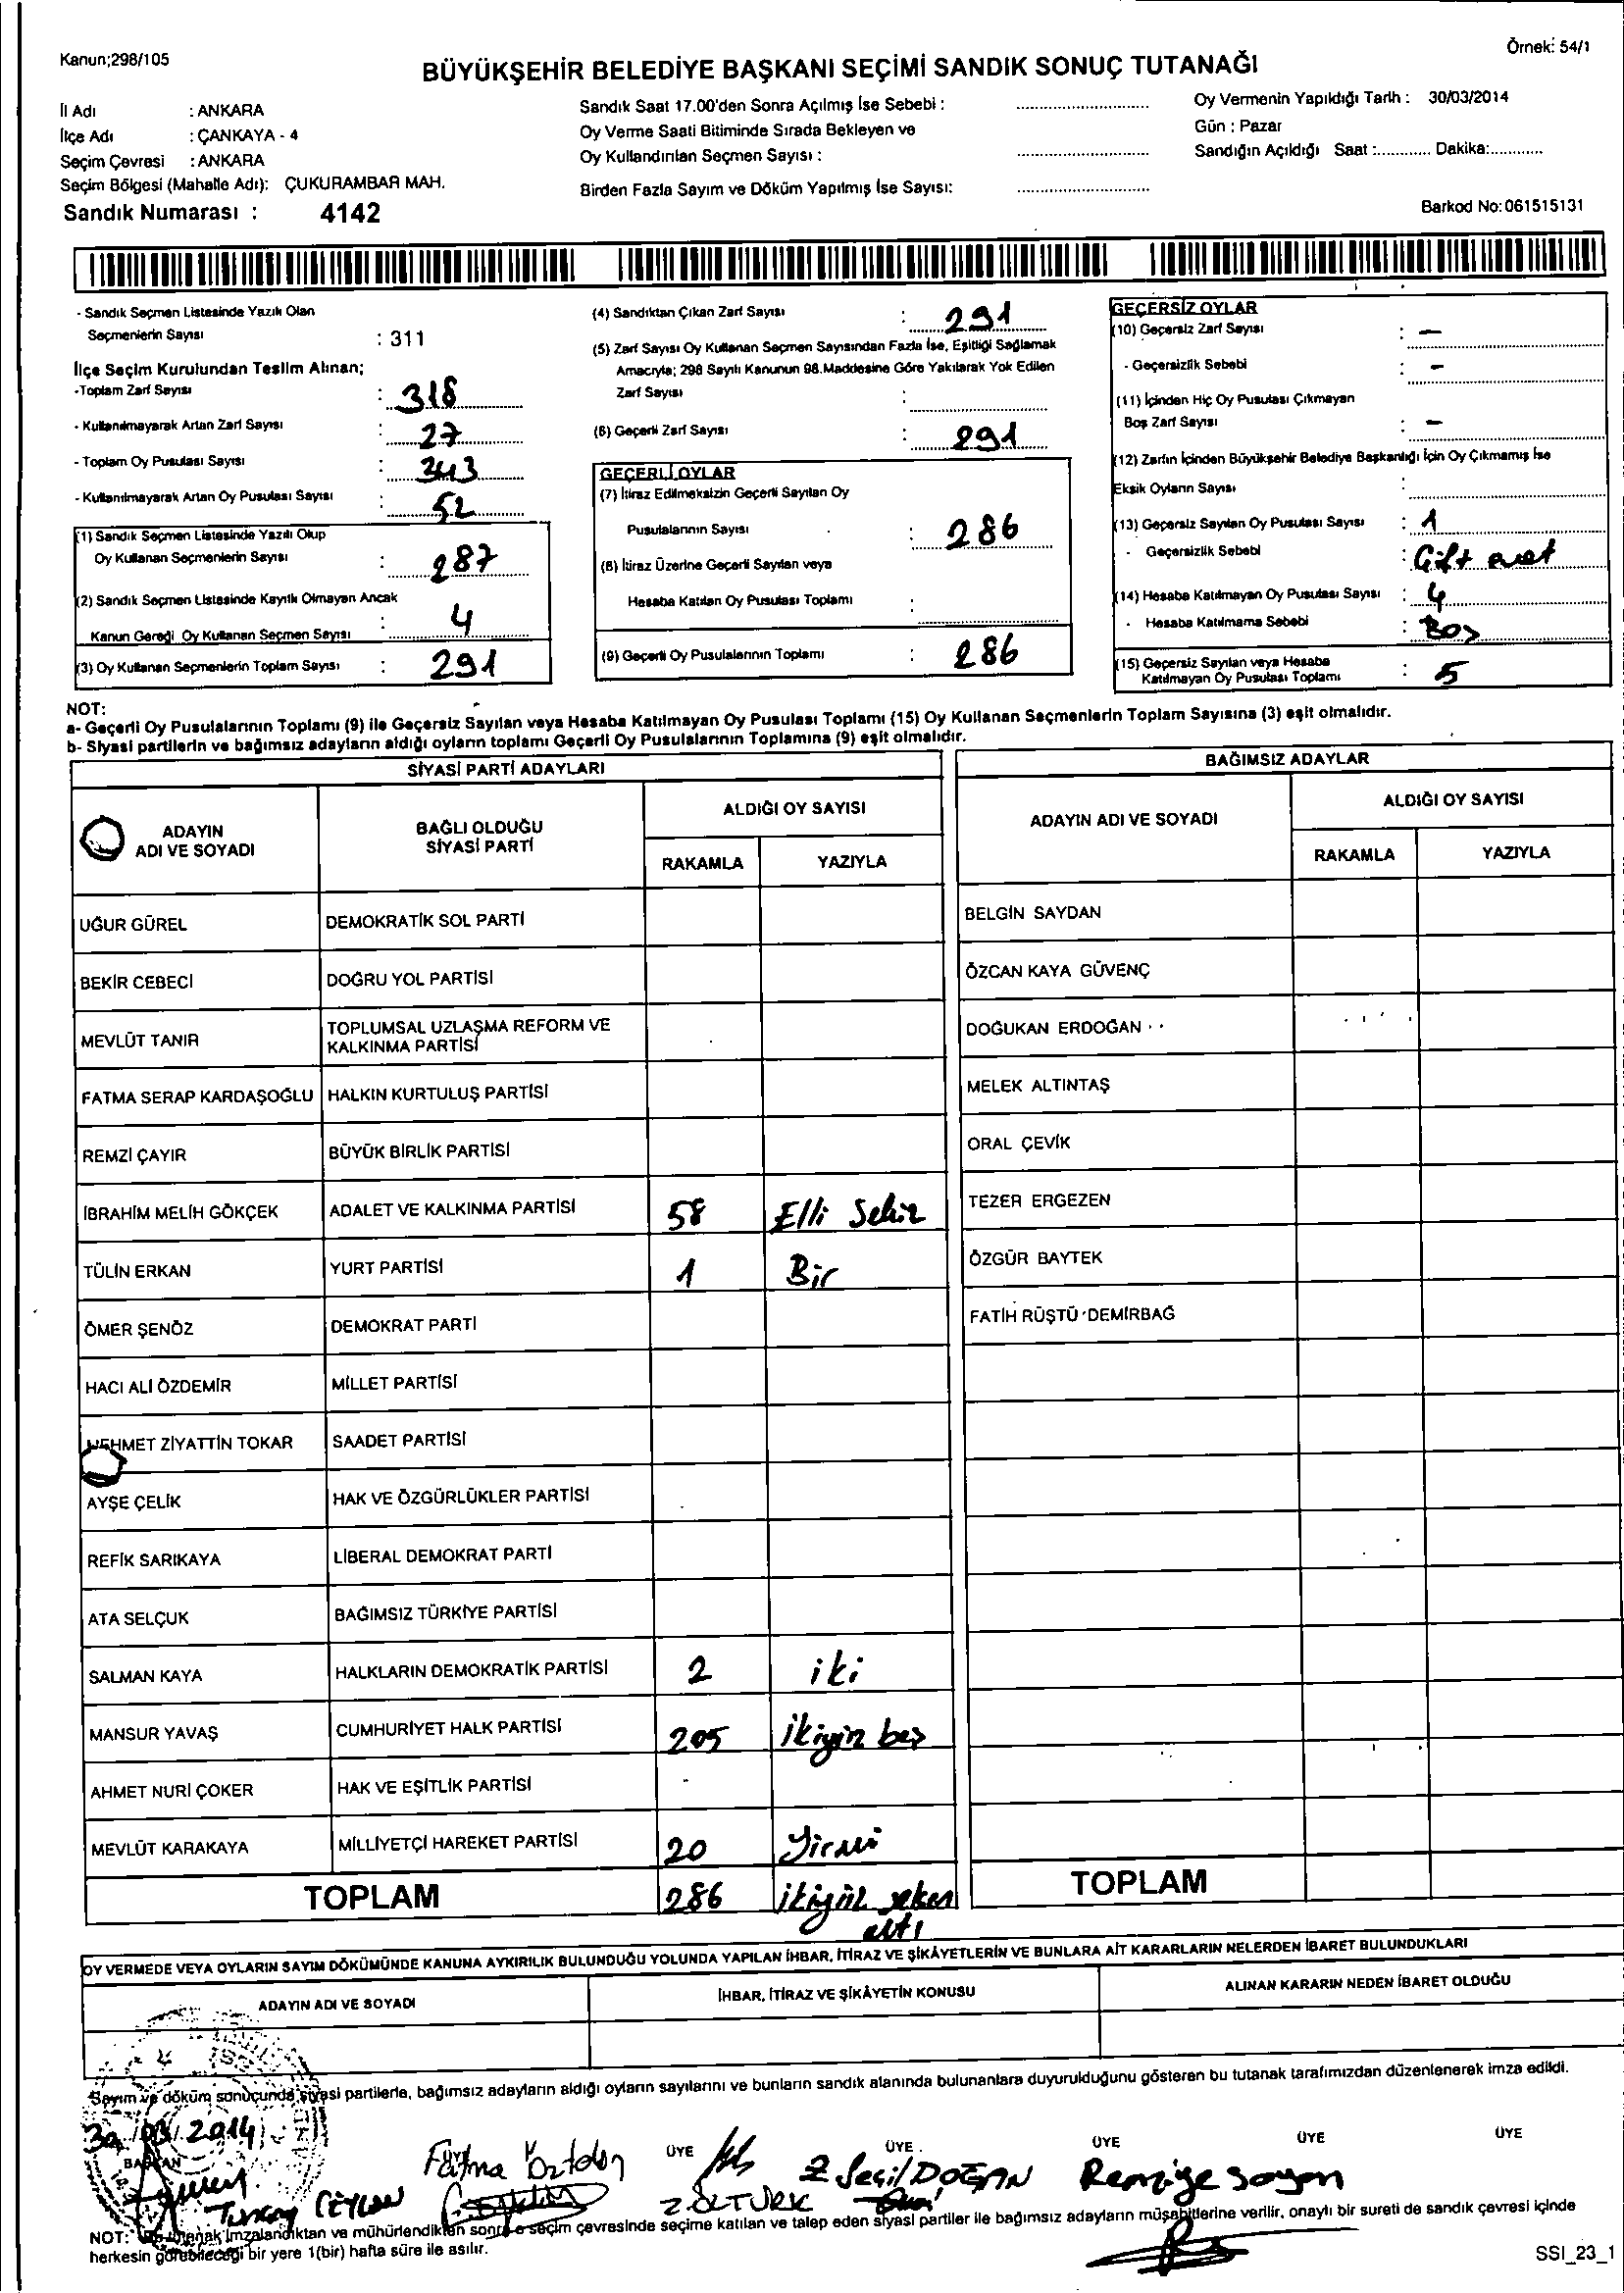 Kanun;298/105
Örnek: 54/1
BÜYÜKŞEHİR BELEDİYE BAŞKANI SEÇİMİ SANDIK SONUÇ TUTANAĞI
İl Adı : ANKARA
İlçe Adı : ÇANKAYA - 4
Seçim Çevresi : ANKARA
Seçim Bölgesi (Mahalle Adı): ÇUKURAMBAR MAH.
Sandık Numarası : 4142
Sandık Saat 17.00'den Sonra Açılmış İse Sebebi :
Oy Verme Saati Bitiminde Sırada Bekleyen ve
Oy Kullandırılan Seçmen Sayısı :
Birden Fazla Sayım ve Döküm Yapılmış İse Sayısı:
Oy Vermenin Yapıldığı Tarih : 30/03/2014
Gün : Pazar
Sandığın Açıldığı Saat :............ Dakika:............
Barkod No:061515131
- Sandık Seçmen Listesinde Yazılı Olan
Seçmenlerin Sayısı : 311
İlçe Seçim Kurulundan Teslim Alınan;
-Toplam Zarf Sayısı : 318
- Kullanılmayarak Artan Zarf Sayısı : 27
- Toplam Oy Pusulası Sayısı : 343
- Kullanılmayarak Artan Oy Pusulası Sayısı : 52
(1) Sandık Seçmen Listesinde Yazılı Olup
Oy Kullanan Seçmenlerin Sayısı : 287
(2) Sandık Seçmen Listesinde Kayıtlı Olmayan Ancak
Kanun Gereği Oy Kullanan Seçmen Sayısı : 4
(3) Oy Kullanan Seçmenlerin Toplam Sayısı : 291
(4) Sandıktan Çıkan Zarf Sayısı : 291
(5) Zarf Sayısı Oy Kullanan Seçmen Sayısından Fazla İse, Eşitliği Sağlamak
Amacıyla; 298 Sayılı Kanunun 98.Maddesine Göre Yakılarak Yok Edilen
Zarf Sayısı :
(6) Geçerli Zarf Sayısı : 291
GEÇERLİ OYLAR
(7) İtiraz Edilmeksizin Geçerli Sayılan Oy
Pusulalarının Sayısı : 286
(8) İtiraz Üzerine Geçerli Sayılan veya
Hesaba Katılan Oy Pusulası Toplamı :
(9) Geçerli Oy Pusulalarının Toplamı : 286
GEÇERSİZ OYLAR
(10) Geçersiz Zarf Sayısı : -
- Geçersizlik Sebebi : -
(11) İçinden Hiç Oy Pusulası Çıkmayan
Boş Zarf Sayısı : -
(12) Zarfın İçinden Büyükşehir Belediye Başkanlığı İçin Oy Çıkmamış İse
Eksik Oyların Sayısı :
(13) Geçersiz Sayılan Oy Pusulası Sayısı : 1
- Geçersizlik Sebebi : Çift evet
(14) Hesaba Katılmayan Oy Pusulası Sayısı : 4
- Hesaba Katılmama Sebebi : Boş
(15) Geçersiz Sayılan veya Hesaba
Katılmayan Oy Pusulası Toplamı : 5
NOT:
a- Geçerli Oy Pusulalarının Toplamı (9) ile Geçersiz Sayılan veya Hesaba Katılmayan Oy Pusulası Toplamı (15) Oy Kullanan Seçmenlerin Toplam Sayısına (3) eşit olmalıdır.
b- Siyasi partilerin ve bağımsız adayların aldığı oyların toplamı Geçerli Oy Pusulalarının Toplamına (9) eşit olmalıdır.
SİYASİ PARTİ ADAYLARI
ADAYIN ADI VE SOYADI
BAĞLI OLDUĞU SİYASİ PARTİ
ALDIĞI OY SAYISI
RAKAMLA YAZIYLA
UĞUR GÜREL DEMOKRATİK SOL PARTİ
BEKİR CEBECİ DOĞRU YOL PARTİSİ
MEVLÜT TANIR TOPLUMSAL UZLAŞMA REFORM VE KALKINMA PARTİSİ
FATMA SERAP KARDAŞOĞLU HALKIN KURTULUŞ PARTİSİ
REMZİ ÇAYIR BÜYÜK BİRLİK PARTİSİ
İBRAHİM MELİH GÖKÇEK ADALET VE KALKINMA PARTİSİ 58 Elli Sekiz
TÜLİN ERKAN YURT PARTİSİ 1 Bir
ÖMER ŞENÖZ DEMOKRAT PARTİ
HACI ALİ ÖZDEMİR MİLLET PARTİSİ
MEHMET ZİYATTİN TOKAR SAADET PARTİSİ
AYŞE ÇELİK HAK VE ÖZGÜRLÜKLER PARTİSİ
REFİK SARIKAYA LİBERAL DEMOKRAT PARTİ
ATA SELÇUK BAĞIMSIZ TÜRKİYE PARTİSİ
SALMAN KAYA HALKLARIN DEMOKRATİK PARTİSİ 2 iki
MANSUR YAVAŞ CUMHURİYET HALK PARTİSİ 205 ikiyüz beş
AHMET NURİ ÇOKER HAK VE EŞİTLİK PARTİSİ
MEVLÜT KARAKAYA MİLLİYETÇİ HAREKET PARTİSİ 20 Yirmi
TOPLAM 286 ikiyüz seksen
altı
BAĞIMSIZ ADAYLAR
ADAYIN ADI VE SOYADI
ALDIĞI OY SAYISI
RAKAMLA YAZIYLA
BELGİN SAYDAN
ÖZCAN KAYA GÜVENÇ
DOĞUKAN ERDOĞAN
MELEK ALTINTAŞ
ORAL ÇEVİK
TEZER ERGEZEN
ÖZGÜR BAYTEK
FATİH RÜŞTÜ DEMİRBAĞ
TOPLAM
OY VERMEDE VEYA OYLARIN SAYIM DÖKÜMÜNDE KANUNA AYKIRILIK BULUNDUĞU YOLUNDA YAPILAN İHBAR, İTİRAZ VE ŞİKÂYETLERİN VE BUNLARA AİT KARARLARIN NELERDEN İBARET BULUNDUKLARI
ADAYIN ADI VE SOYADI
İHBAR, İTİRAZ VE ŞİKÂYETİN KONUSU
ALINAN KARARIN NEDEN İBARET OLDUĞU
Sayım ve döküm sonucunda siyasi partilerle, bağımsız adayların aldığı oyların sayılarını ve bunların sandık alanında bulunanlara duyurulduğunu gösteren bu tutanak tarafımızdan düzenlenerek imza edildi.
30/03/2014
BAŞKAN ÜYE ÜYE ÜYE ÜYE ÜYE
Fatma Öztolon
Z. Seçil DOĞAN
Remziye Soyan
Tuncay CEYLAN
Z.ÖLTÜRK
NOT: Bu tutanak imzalandıktan ve mühürlendikten sonra o seçim çevresinde seçime katılan ve talep eden siyasi partiler ile bağımsız adayların müşahitlerine verilir, onaylı bir sureti de sandık çevresi içinde
herkesin görebileceği bir yere 1(bir) hafta süre ile asılır.
SSI_23_1